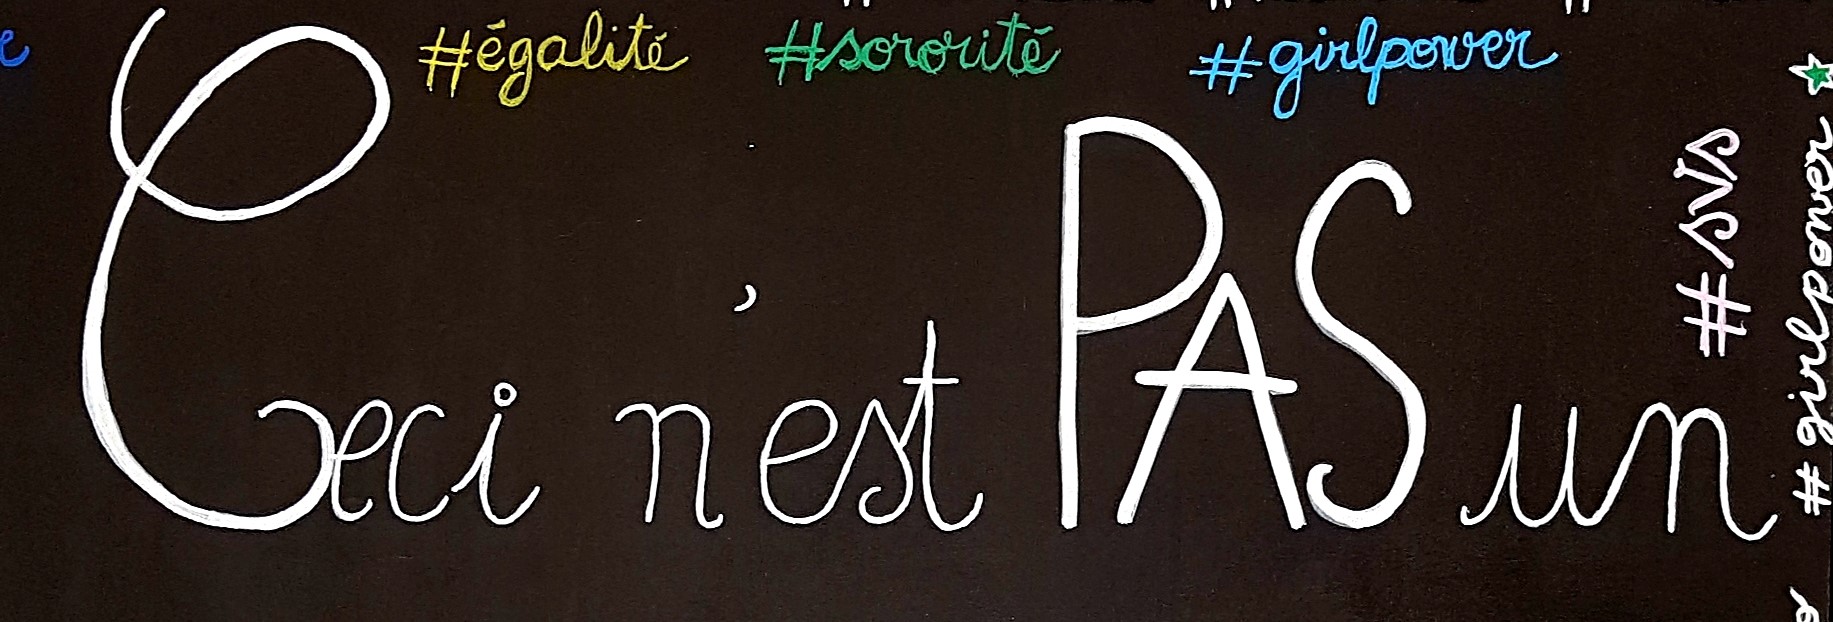 #égalité #sororité #girlpower
Ceci n'est PAS un
#svs
#girlpower